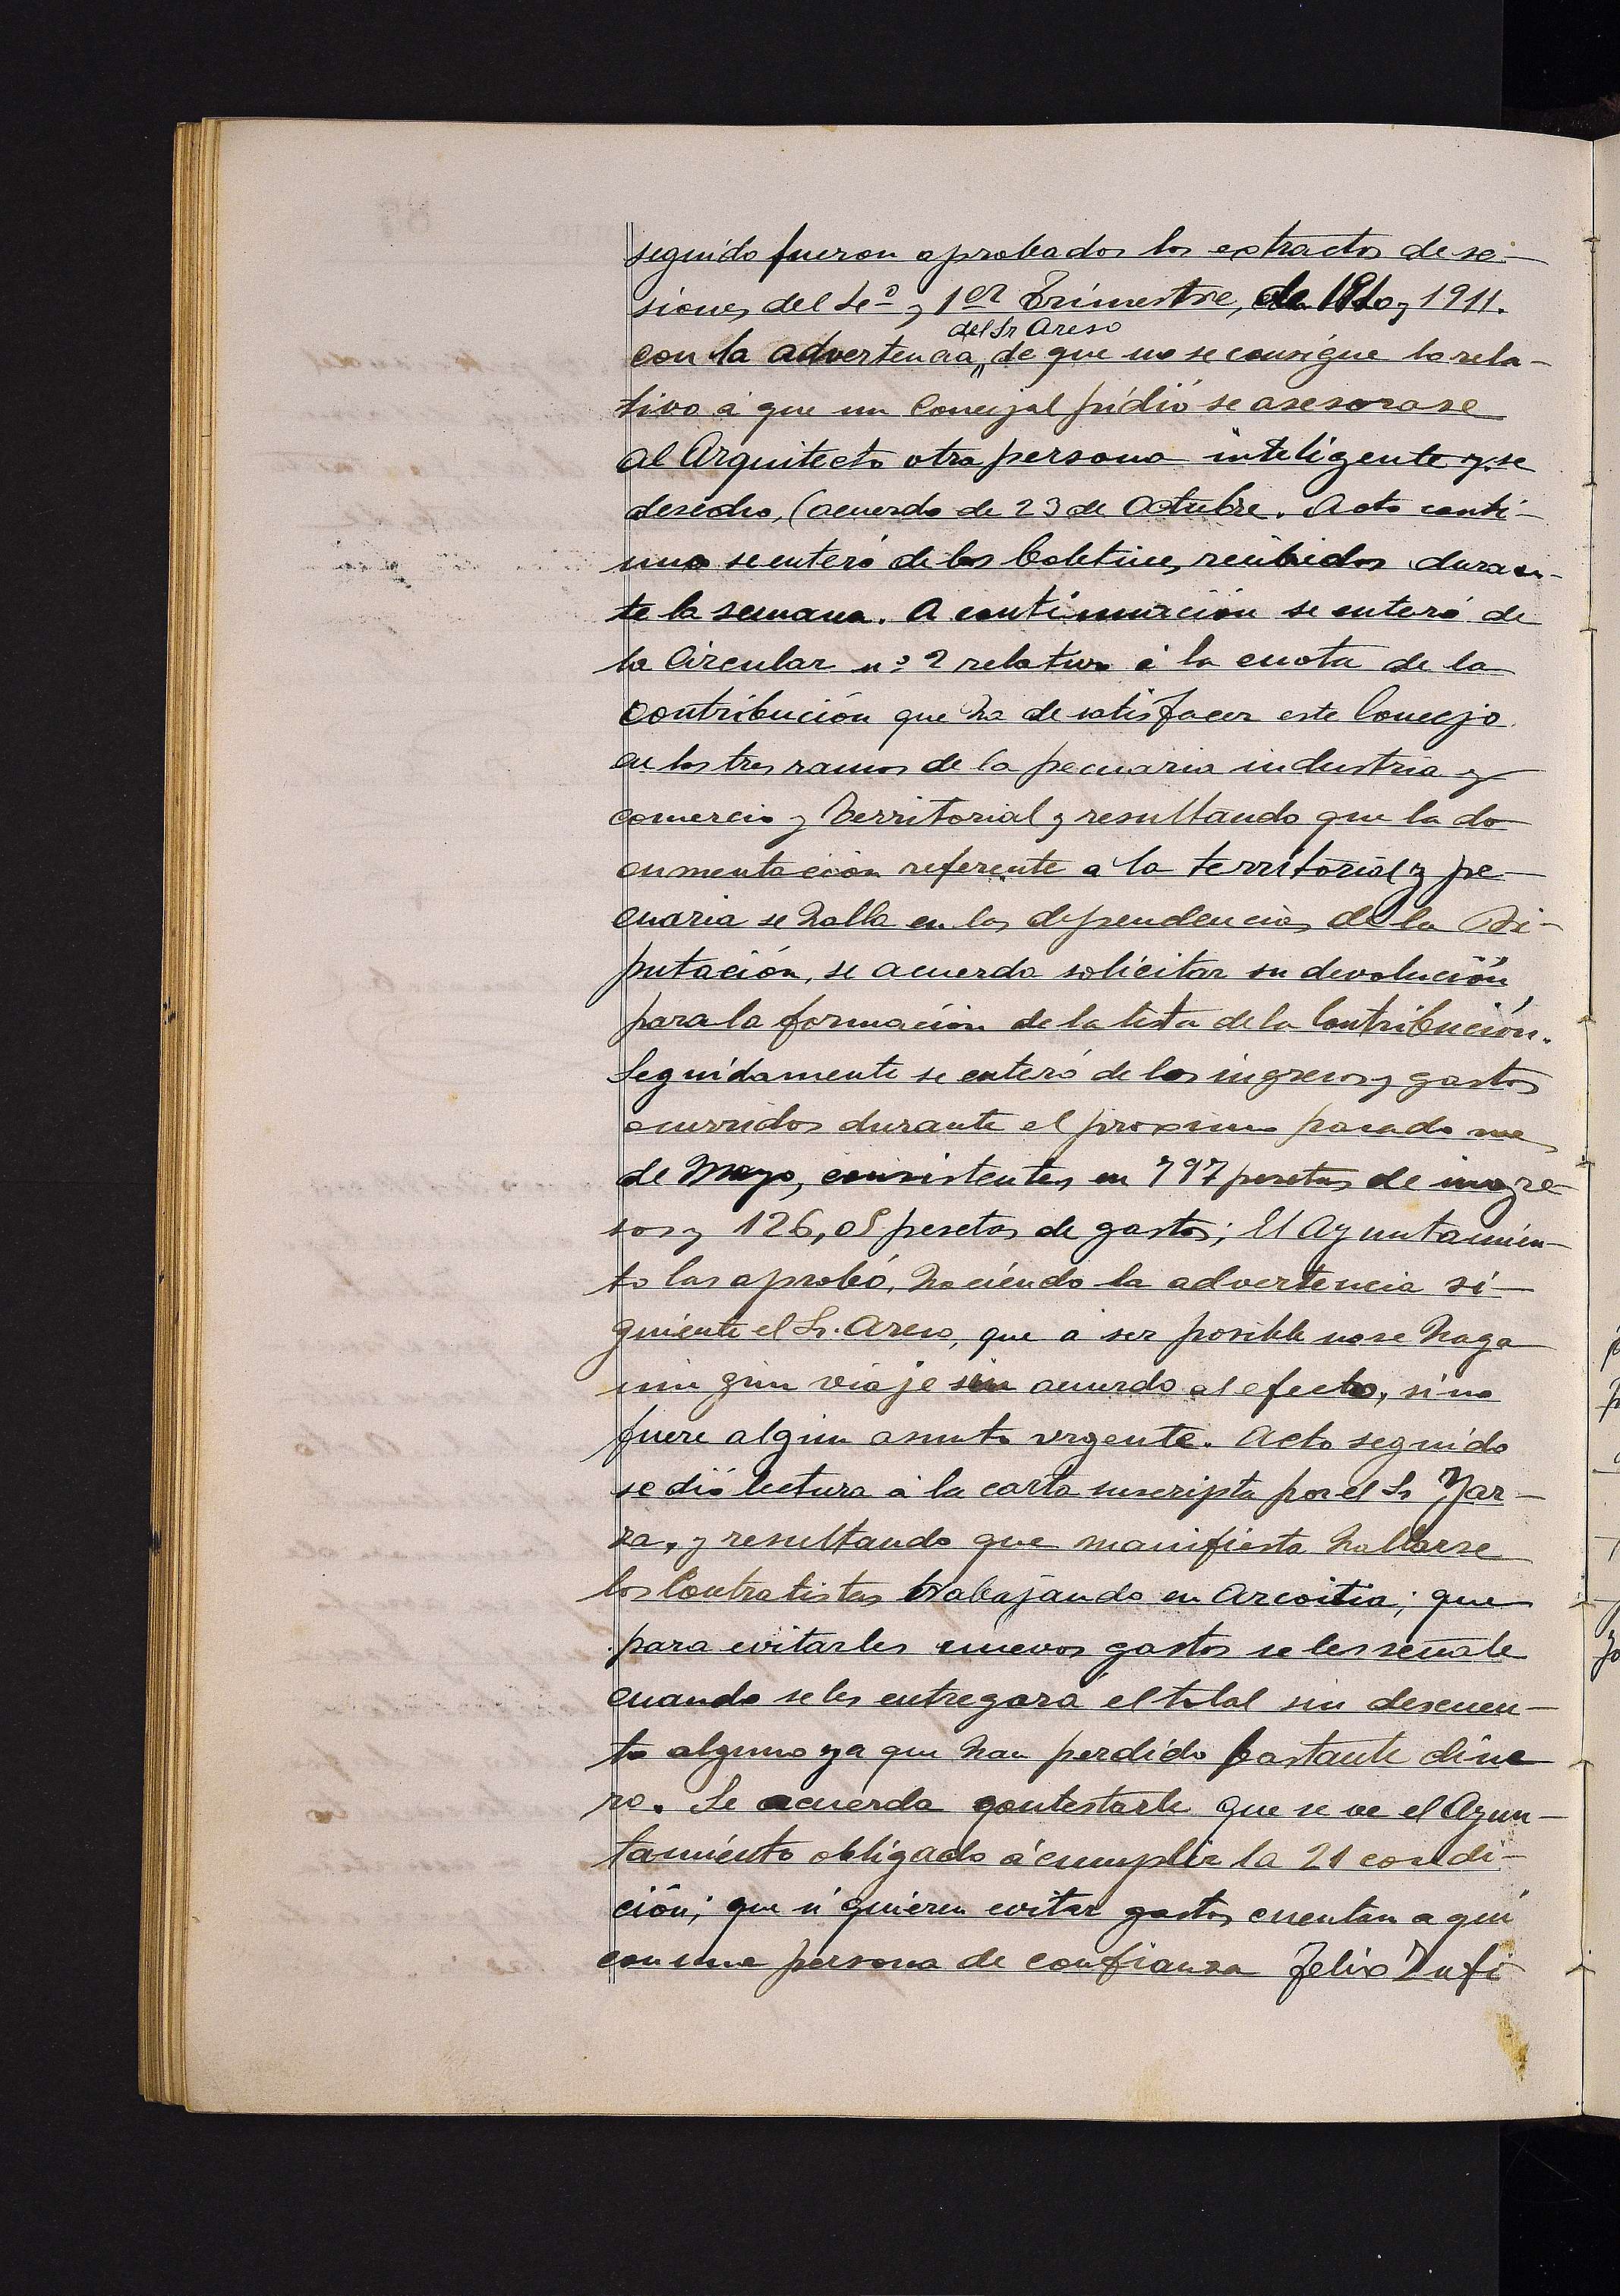 seguido fueron aprobados los extractos de se-
siones del 4º y 1er Trimestre, de 1910 y 1911.
del Sr Areso
con la advertencia, de que no se consigue lo rela-
tivo á que un Concejal pidió se asesorase
al Arquitecto otra persona inteligente y se
desechó, (acuerdo de 23 de Octubre. Acto conti-
nuo se enteró de los Boletines recibidos duran-
te la semana. A continuación se enteró de
la Circular nº 2 relativa á la cuota de la
contribución que ha de satisfacer este Concejo
en los tres ramos de la pecuaria industria y
comercio y Territorial y resultando que la do
cumentación referente a la territorial y pe-
cuaria se halla en las dependencias de la Di-
putación, se acuerda solicitar su devolución
para la formación de la lista de la Contribución.
Seguidamente se enteró de los ingresos y gastos
ocurridos durante el proximo pasado mes
de Mayo, consistentes en 797 pesetas de ingre
sos y 126,05 pesetas de gastos; El Ayuntamien-
to las aprobó, haciendo la advertencia si-
guiente el Sr. Areso, que a ser posible no se haga
nin gún viaje sin acuerdo al efecto, si no
fuere algun asunto urgente. Acto seguido
se dió lectura á la carta suscripta por el Sr Yar-
za, y resultando que manifiesta hallarse
los Contratistas trabajando en Arcoitia; que
para evitarles nuevos gastos se les señale
cuando se les entregara el total sin descuen-
to alguno ya que han perdido bastante dine
ro. Se acuerda contestarle que se ve el Ayun-
tamiento obligado á cumplir la 21 condi-
ción; que si quieren evitar gastos cuentan aquí
con una persona de confianza Felix Zufi